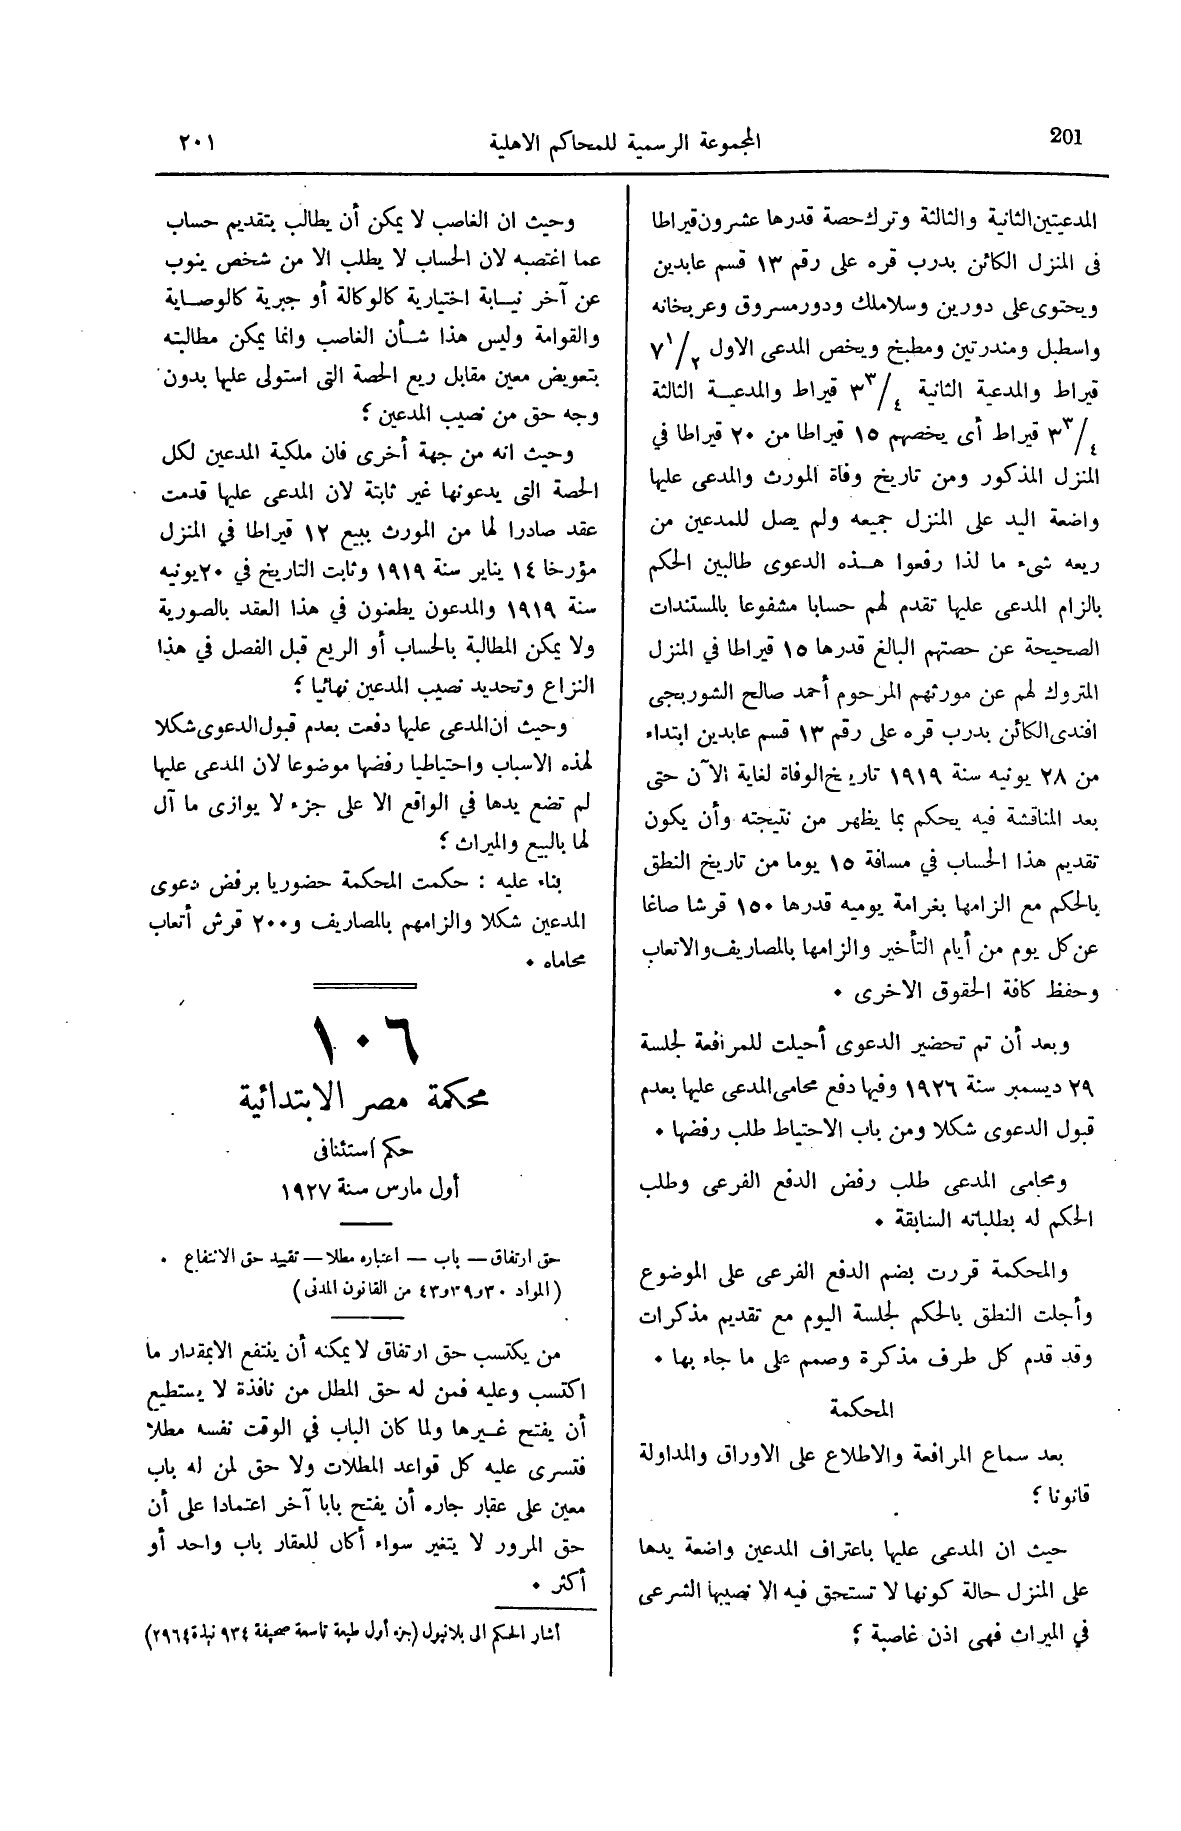 201
المجموعة الرسمية للمحاكم الاهلية
٢٠١
المدعيتين الثانية والثالثة وترك حصة قدرها عشرون قيراطا
فى المنزل الكائن بدرب قره على رقم ١٣ قسم عابدين
ويحتوى على دورين وسلاملك ودور مسروق وعربخانه
واسطبل ومندرتين ومطبخ ويخص المدعى الاول ٧ ١/٢
قيراط والمدعية الثانية ٣ ٣/٤ قيراط والمدعيـة الثالثة
٣ ٣/٤ قيراط أى يخصهم ١٥ قيراطا من ٢٠ قيراطا في
المنزل المذكور ومن تاريخ وفاة المورث والمدعى عليها
واضعة اليد على المنزل جميعه ولم يصل للمدعين من
ريعه شىء ما لذا رفعوا هـذه الدعوى طالبين الحكم
بالزام المدعى عليها تقدم لهم حسابا مشفوعا بالمستندات
الصحيحة عن حصتهم البالغ قدرها ١٥ قيراطا في المنزل
المتروك لهم عن مورثهم المرحوم أحمد صالح الشوربجى
افندى الكائن بدرب قره على رقم ١٣ قسم عابدين ابتداء
من ٢٨ يونيه سنة ١٩١٩ تاريخ الوفاة لغاية الآن حتى
بعد المناقشة فيه يحكم بما يظهر من نتيجته وأن يكون
تقديم هذا الحساب في مسافة ١٥ يوما من تاريخ النطق
بالحكم مع الزامها بغرامة يوميه قدرها ١٥٠ قرشا صاغا
عن كل يوم من أيام التأخير والزامها بالمصاريف والاتعاب
وحفظ كافة الحقوق الاخرى ٠
وبعد أن تم تحضير الدعوى أحيلت للمرافعة لجلسة
٢٩ ديسمبر سنة ١٩٢٦ وفيها دفع محامى المدعى عليها بعدم
قبول الدعوى شكلا ومن باب الاحتياط طلب رفضها ٠
ومحامى المدعى طلب رفض الدفع الفرعى وطلب
الحكم له بطلباته السابقة ٠
والمحكمة قررت بضم الدفع الفرعى على الموضوع
وأجلت النطق بالحكم لجلسة اليوم مع تقديم مذكرات
وقد قدم كل طرف مذكرة وصمم على ما جاء بها ٠
المحكمة
بعد سماع المرافعة والاطلاع على الاوراق والمداولة
قانونا ؛
حيث ان المدعى عليها باعتراف المدعين واضعة يدها
على المنزل حالة كونها لا تستحق فيه الا نصيبها الشرعى
في الميراث فهى اذن غاصبة ؛
وحيث ان الغاصب لا يمكن أن يطالب بتقديم حساب
عما اغتصبه لان الحساب لا يطلب الا من شخص ينوب
عن آخر نيـابة اختيارية كالوكالة أو جبرية كالوصـاية
والقوامة وليس هذا شـأن الغاصب وانما يمكن مطالبته
بتعويض معين مقابل ريع الحصة التى استولى عليها بدون
وجه حق من نصيب المدعين ؛
وحيث انه من جهة أخرى فان ملكية المدعين لكل
الحصة التى يدعونها غير ثابتة لان المدعى عليها قدمت
عقد صادرا لها من المورث ببيع ١٢ قيراطا في المنزل
مؤرخا ١٤ يناير سنة ١٩١٩ وثابت التاريخ في ٢٠ يونيه
سنة ١٩١٩ والمدعون يطعنون في هذا العقد بالصورية
ولا يمكن المطالبة بالحساب أو الريع قبل الفصل في هذا
النزاع وتحديد نصيب المدعين نهائيا ؛
وحيث ان المدعى عليها دفعت بعدم قبول الدعوى شكلا
لهذه الاسباب واحتياطيا رفضها موضوعا لان المدعى عليها
لم تضع يدها في الواقع الا على جزء لا يوازى ما آل
لها بالبيع والميراث ؛
بناء عليه : حكمت المحكمة حضوريا برفض دعوى
المدعين شكلا والزامهم بالمصاريف و٢٠٠ قرش أتعاب
محاماه ٠
١٠٦
محكمة مصر الابتدائية
حكم استئنافى
أول مارس سنة ١٩٢٧
حق ارتفاق — باب — اعتباره مطلا — تقييد حق الانتفاع ٠
(المواد ٣٠ و٣٩ و٤٣ من القانون المدنى)
من يكتسب حق ارتفاق لا يمكنه أن ينتفع الا بمقدار ما
اكتسب وعليه فمن له حق المطل من نافذة لا يستطيع
أن يفتح غـيرها ولما كان الباب في الوقت نفسه مطلا
فتسرى عليه كل قواعد المطلات ولا حق لمن له باب
معين على عقار جاره أن يفتح بابا آخر اعتمادا على أن
حق المرور لا يتغير سواء أكان للعقار باب واحد أو
أكثر ٠
أشار الحكم الى بلانيول (جزء أول طبعة تاسعة صحيفة ٩٣٤ نبذة ٢٩٦٤)